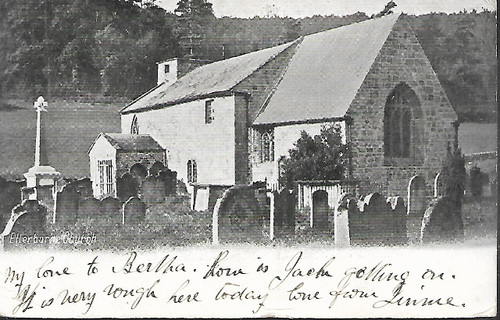 Ellerburne Church
My love to Bertha. How is Jack getting on.
It is very rough here today love from Linnie.